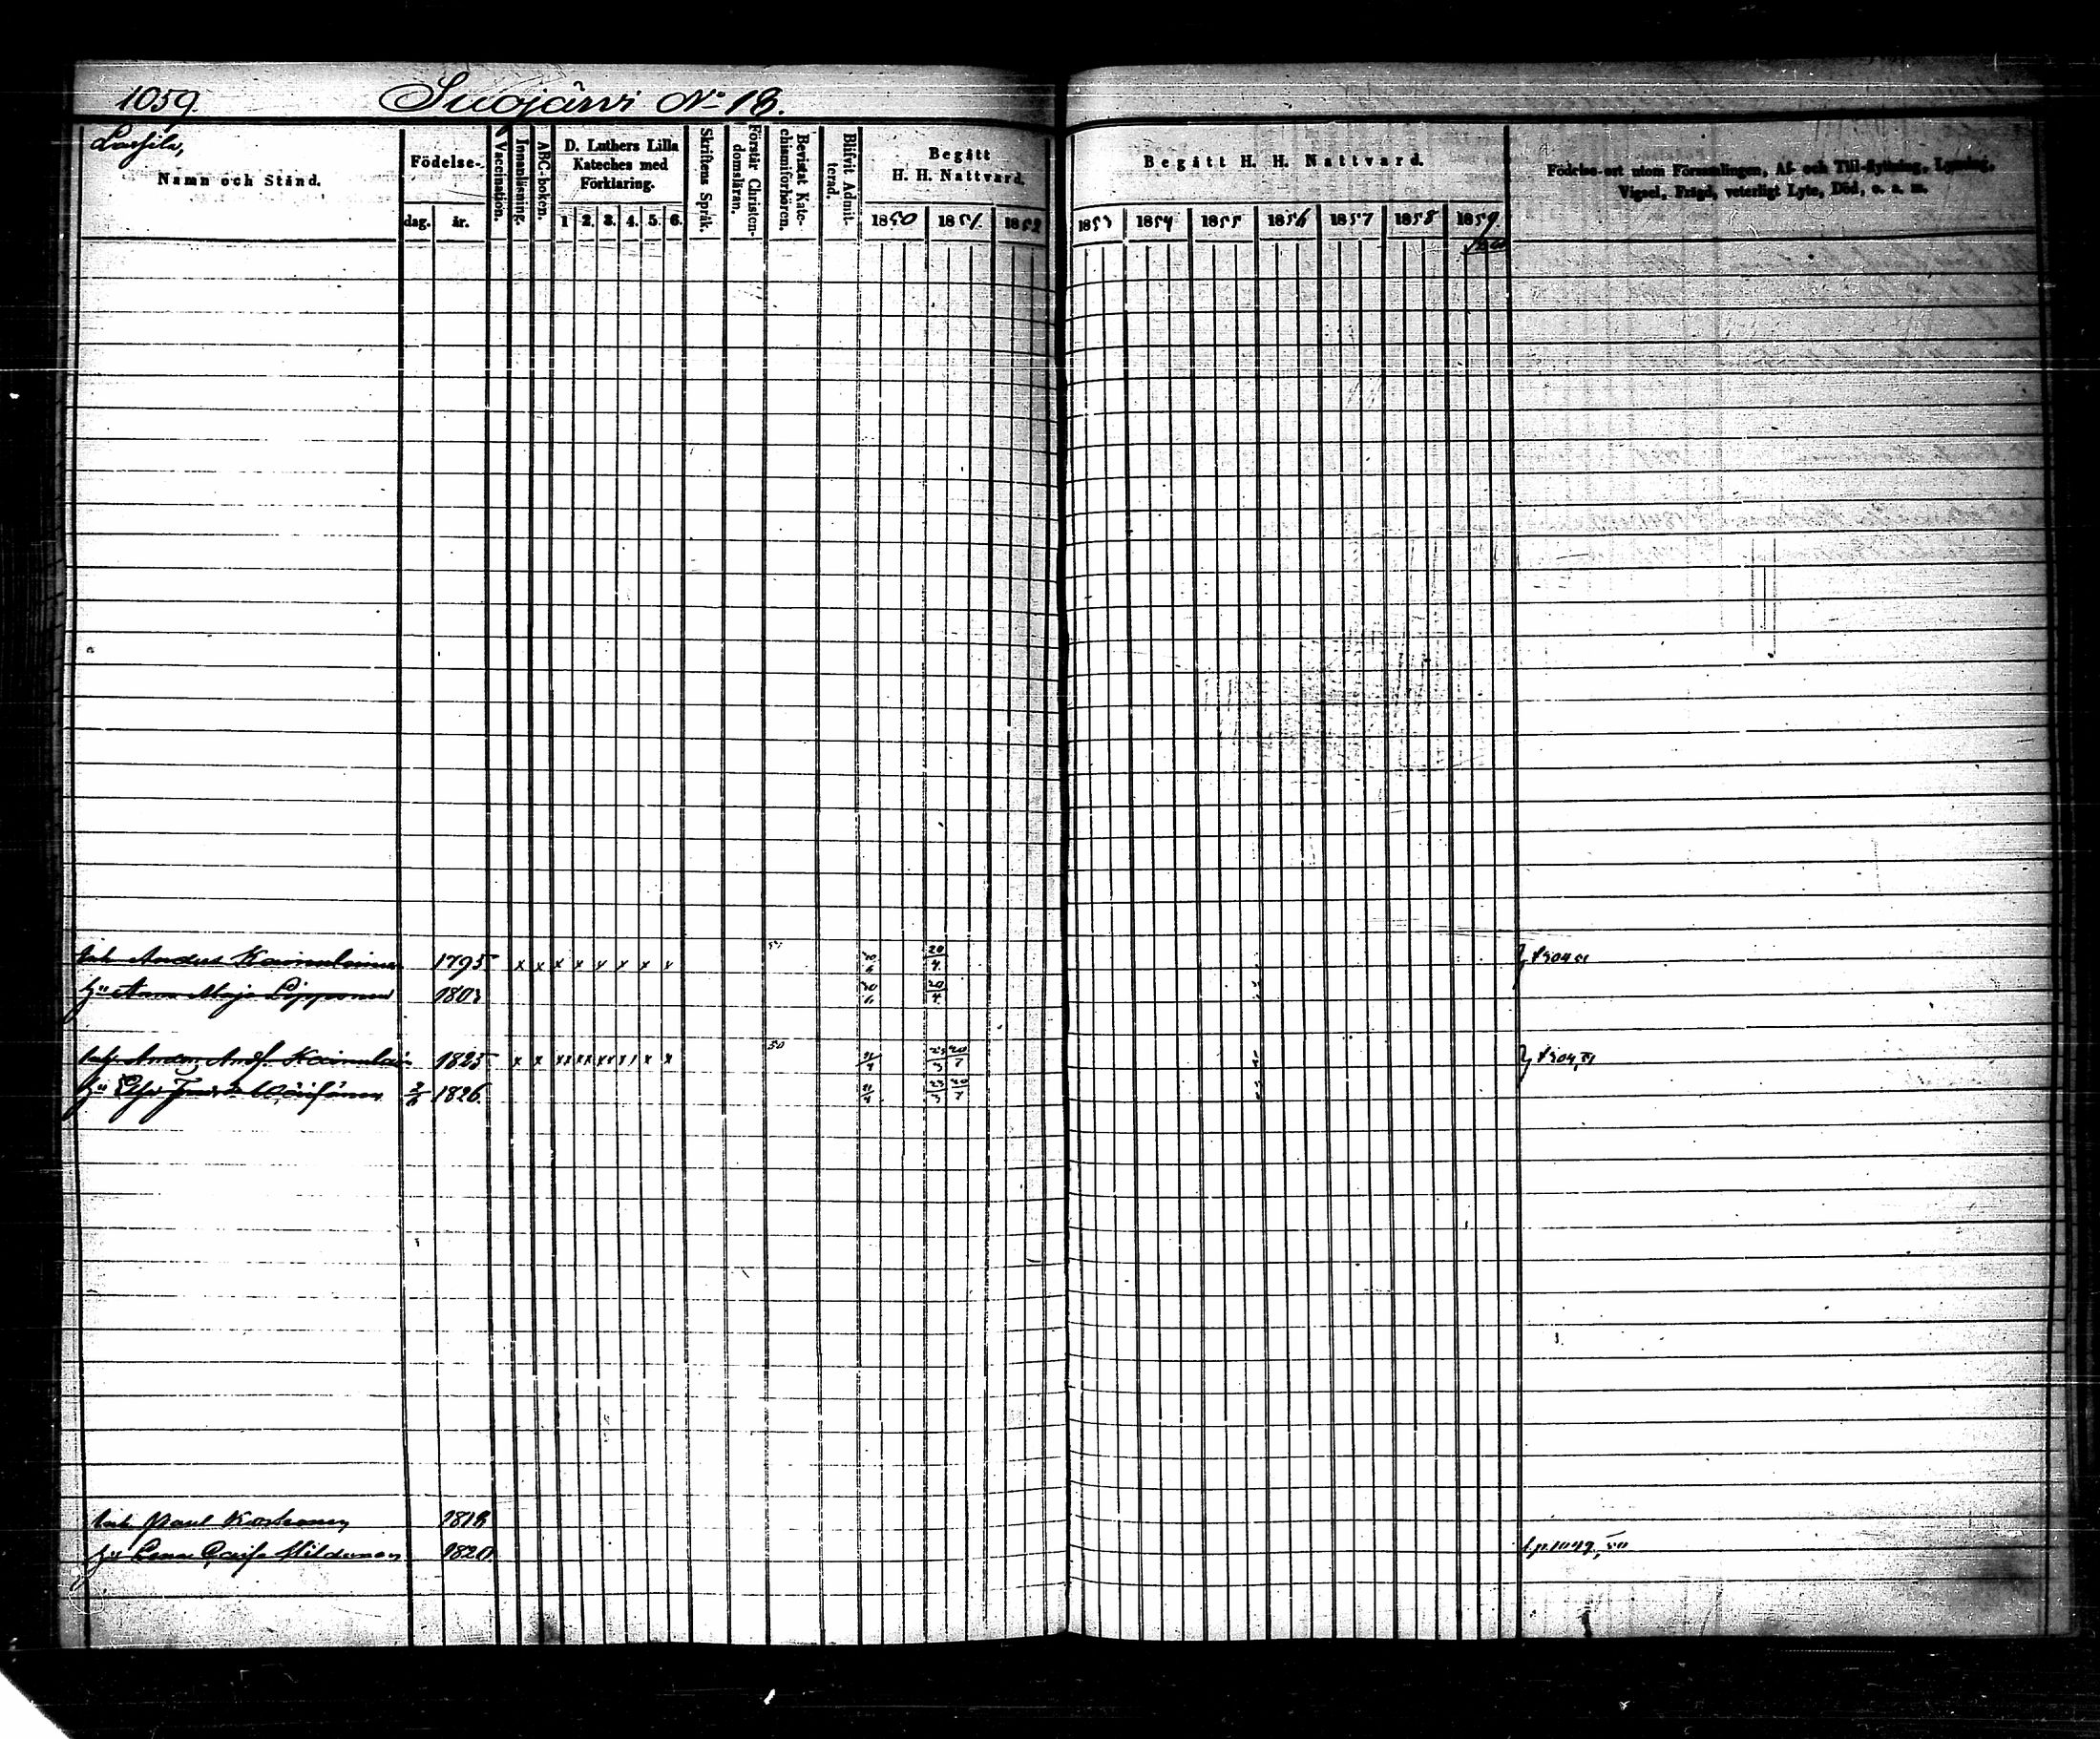 1059. Suojärvi No 18.
Lassila,
Namn och Stånd.
Födelse-
dag. år.
Vaccination.
Innanläsning.
ABC-boken.
D. Luthers Lilla
Kateches med
Förklaring.
1 2. 3. 4. 5. 6.
Skriftens Språk.
Förstår Christen-
domsläran.
Bevistat Kate-
chismiförhören.
Blifvit Admit-
terad.
Begått
H. H. Nattvard.
1850 1851. 1852
Begått H. H. Nattvard.
1853 1854 1855 1856 1857 1858 1859.
Födelse-ort utom Församlingen, Af- och Till-flyttning, Lysning,
Vigsel, Frägd, veterligt Lyte, Död, o. s. m.
Anders Kainulainen 1795 x x x x x x x x 20/6 20/4
hu Anna Maja Lipponen 1803 20/6 20/4
And. Kainulain 1825 x x xx xx xx x x x 50 11/4 23/3 20/7
hu 2/6 1826. 11/4 23/3 20/7
Paul Korhonen 1818
hu Lena Caisa Hildunen 1820